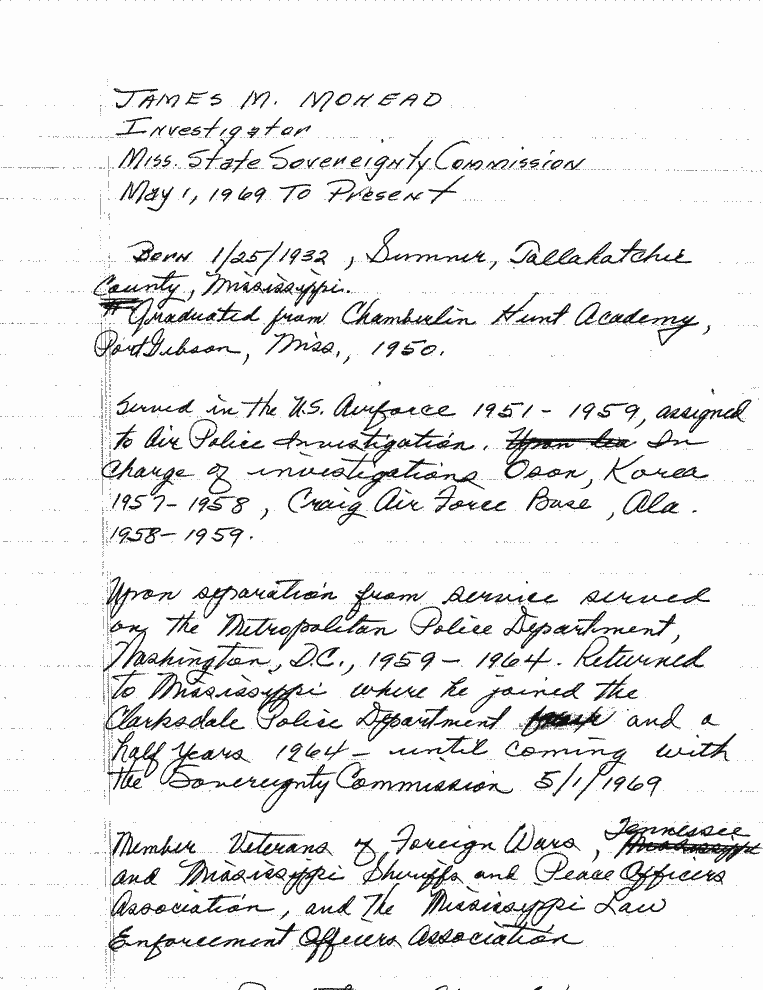 JAMES M. MOHEAD
Investigator
Miss. State Sovereignty Commission
May 1, 1969 To Present
Born 1/25/1932, Sumner, Tallahatchie
County, Mississippi.
Graduated from Chamberlin Hunt Academy,
Port Gibson, Miss., 1950.
Served in the U.S. Airforce 1951-1959, assigned
to Air Police Investigation. In
charge of investigations Oson, Korea
1957-1958, Craig Air Force Base, Ala.
1958-1959.
Upon separation from service served
on the Metropolitan Police Department,
Washington, D.C., 1959-1964. Returned
to Mississippi where he joined the
Clarksdale Police Department and a
half years 1964- until coming with
the Sovereignty Commission 5/1/1969
Member Veterans of Foreign Wars, Tennessee
and Mississippi Sheriffs and Peace Officers
Association, and The Mississippi Law
Enforcement Officers Association